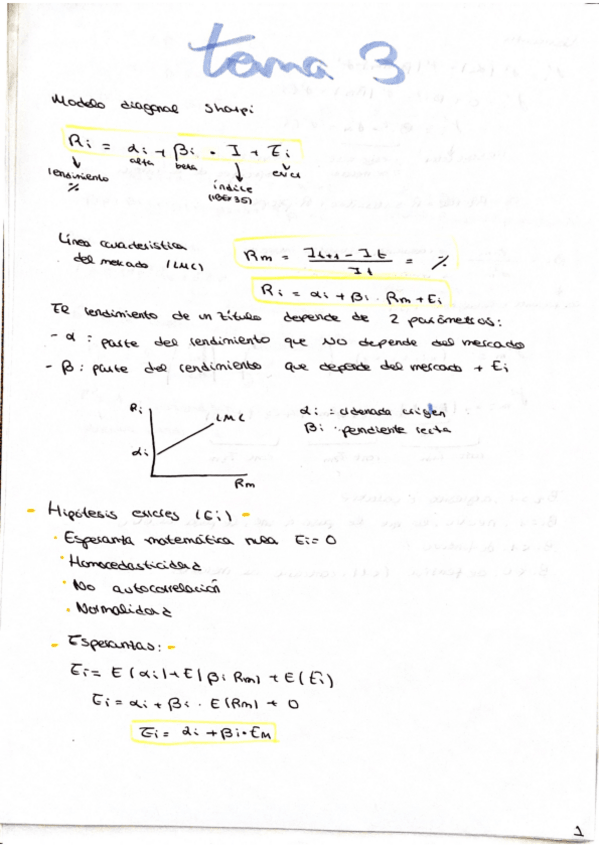 tema 3
Modelo diagonal Sharpi
Ri = αi + βi • I + Ɛi
alfa beta
rendimiento %
índice (IBEX35)
error
Línea característica del mercado (LMC)
Rm = (It+1 - It) / It = %
Ri = αi + βi · Rm + Ɛi
El rendimiento de un título depende de 2 parámetros:
- α : parte del rendimiento que NO depende del mercado
- β : parte del rendimiento que depende del mercado + Ɛi
Ri
LMC
αi
Rm
αi : ordenada origen
βi : pendiente recta
- Hipótesis errores (Ɛi) -
· Esperanza matemática nula Ɛi = 0
· Homocedasticidad
· No autocorrelación
· Normalidad
- Esperanzas: -
Ei = E(αi) + E(βi Rm) + E(Ɛi)
Ei = αi + βi · E(Rm) + 0
Ei = αi + βi • EM
1